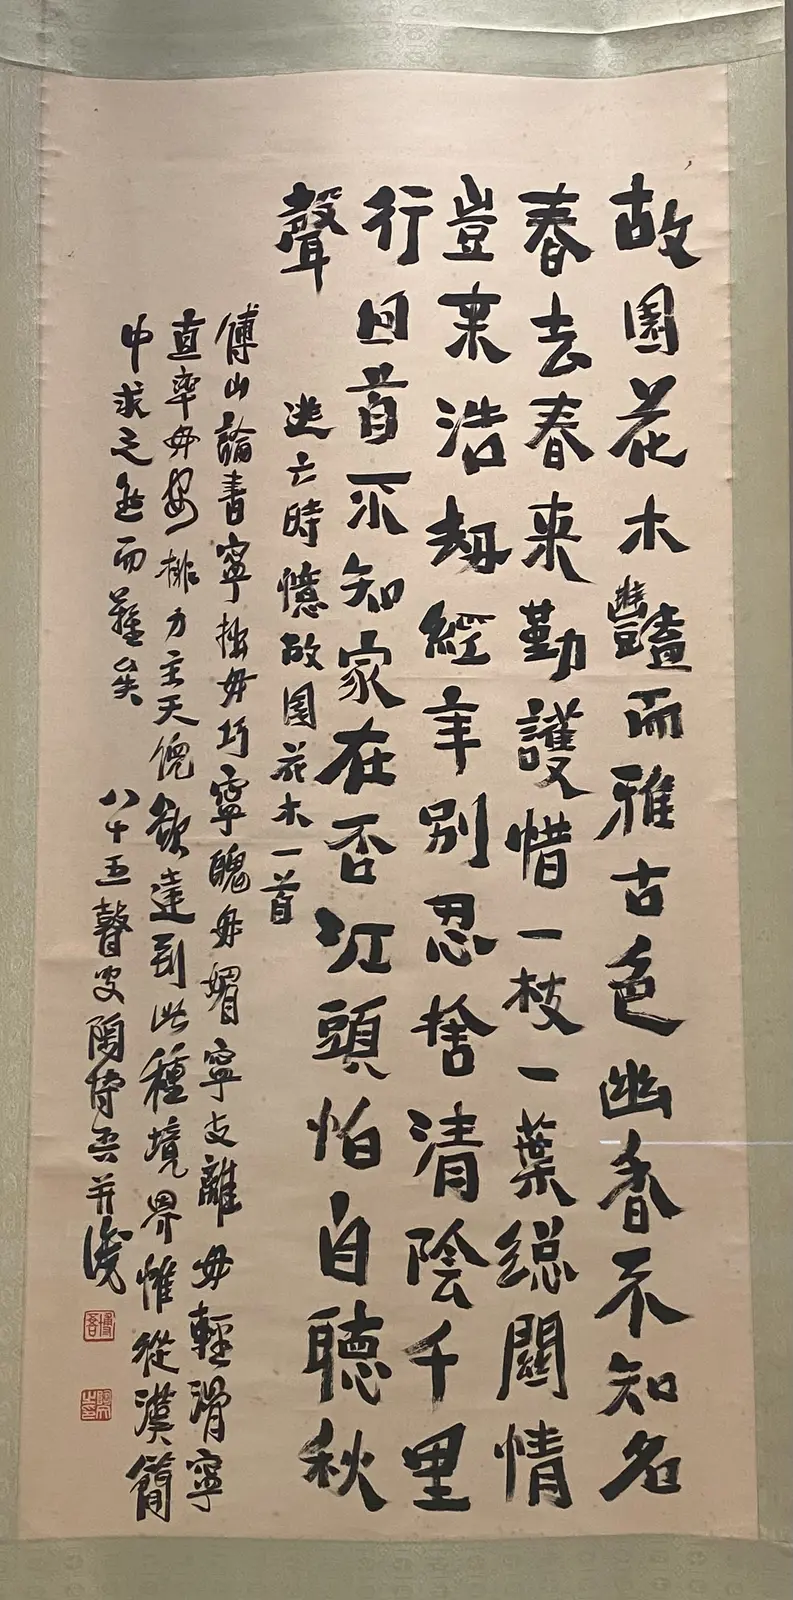 故園花木豔而雅古色幽香不知名
春去春来勤護惜一枝一葉総關情
豈来浩劫經年別忍捨清陰千里
行回首不知家在否江頭怕自聽秋
聲
逃亡時憶故園花木一首
傅山論書寧拙毋巧寧醜毋媚寧支離毋輕滑寧
直率毋安排力主天倪欲達到此種境界惟從漢簡
中求之然而難矣
八十五瞽叟陶博吾并識
博吾